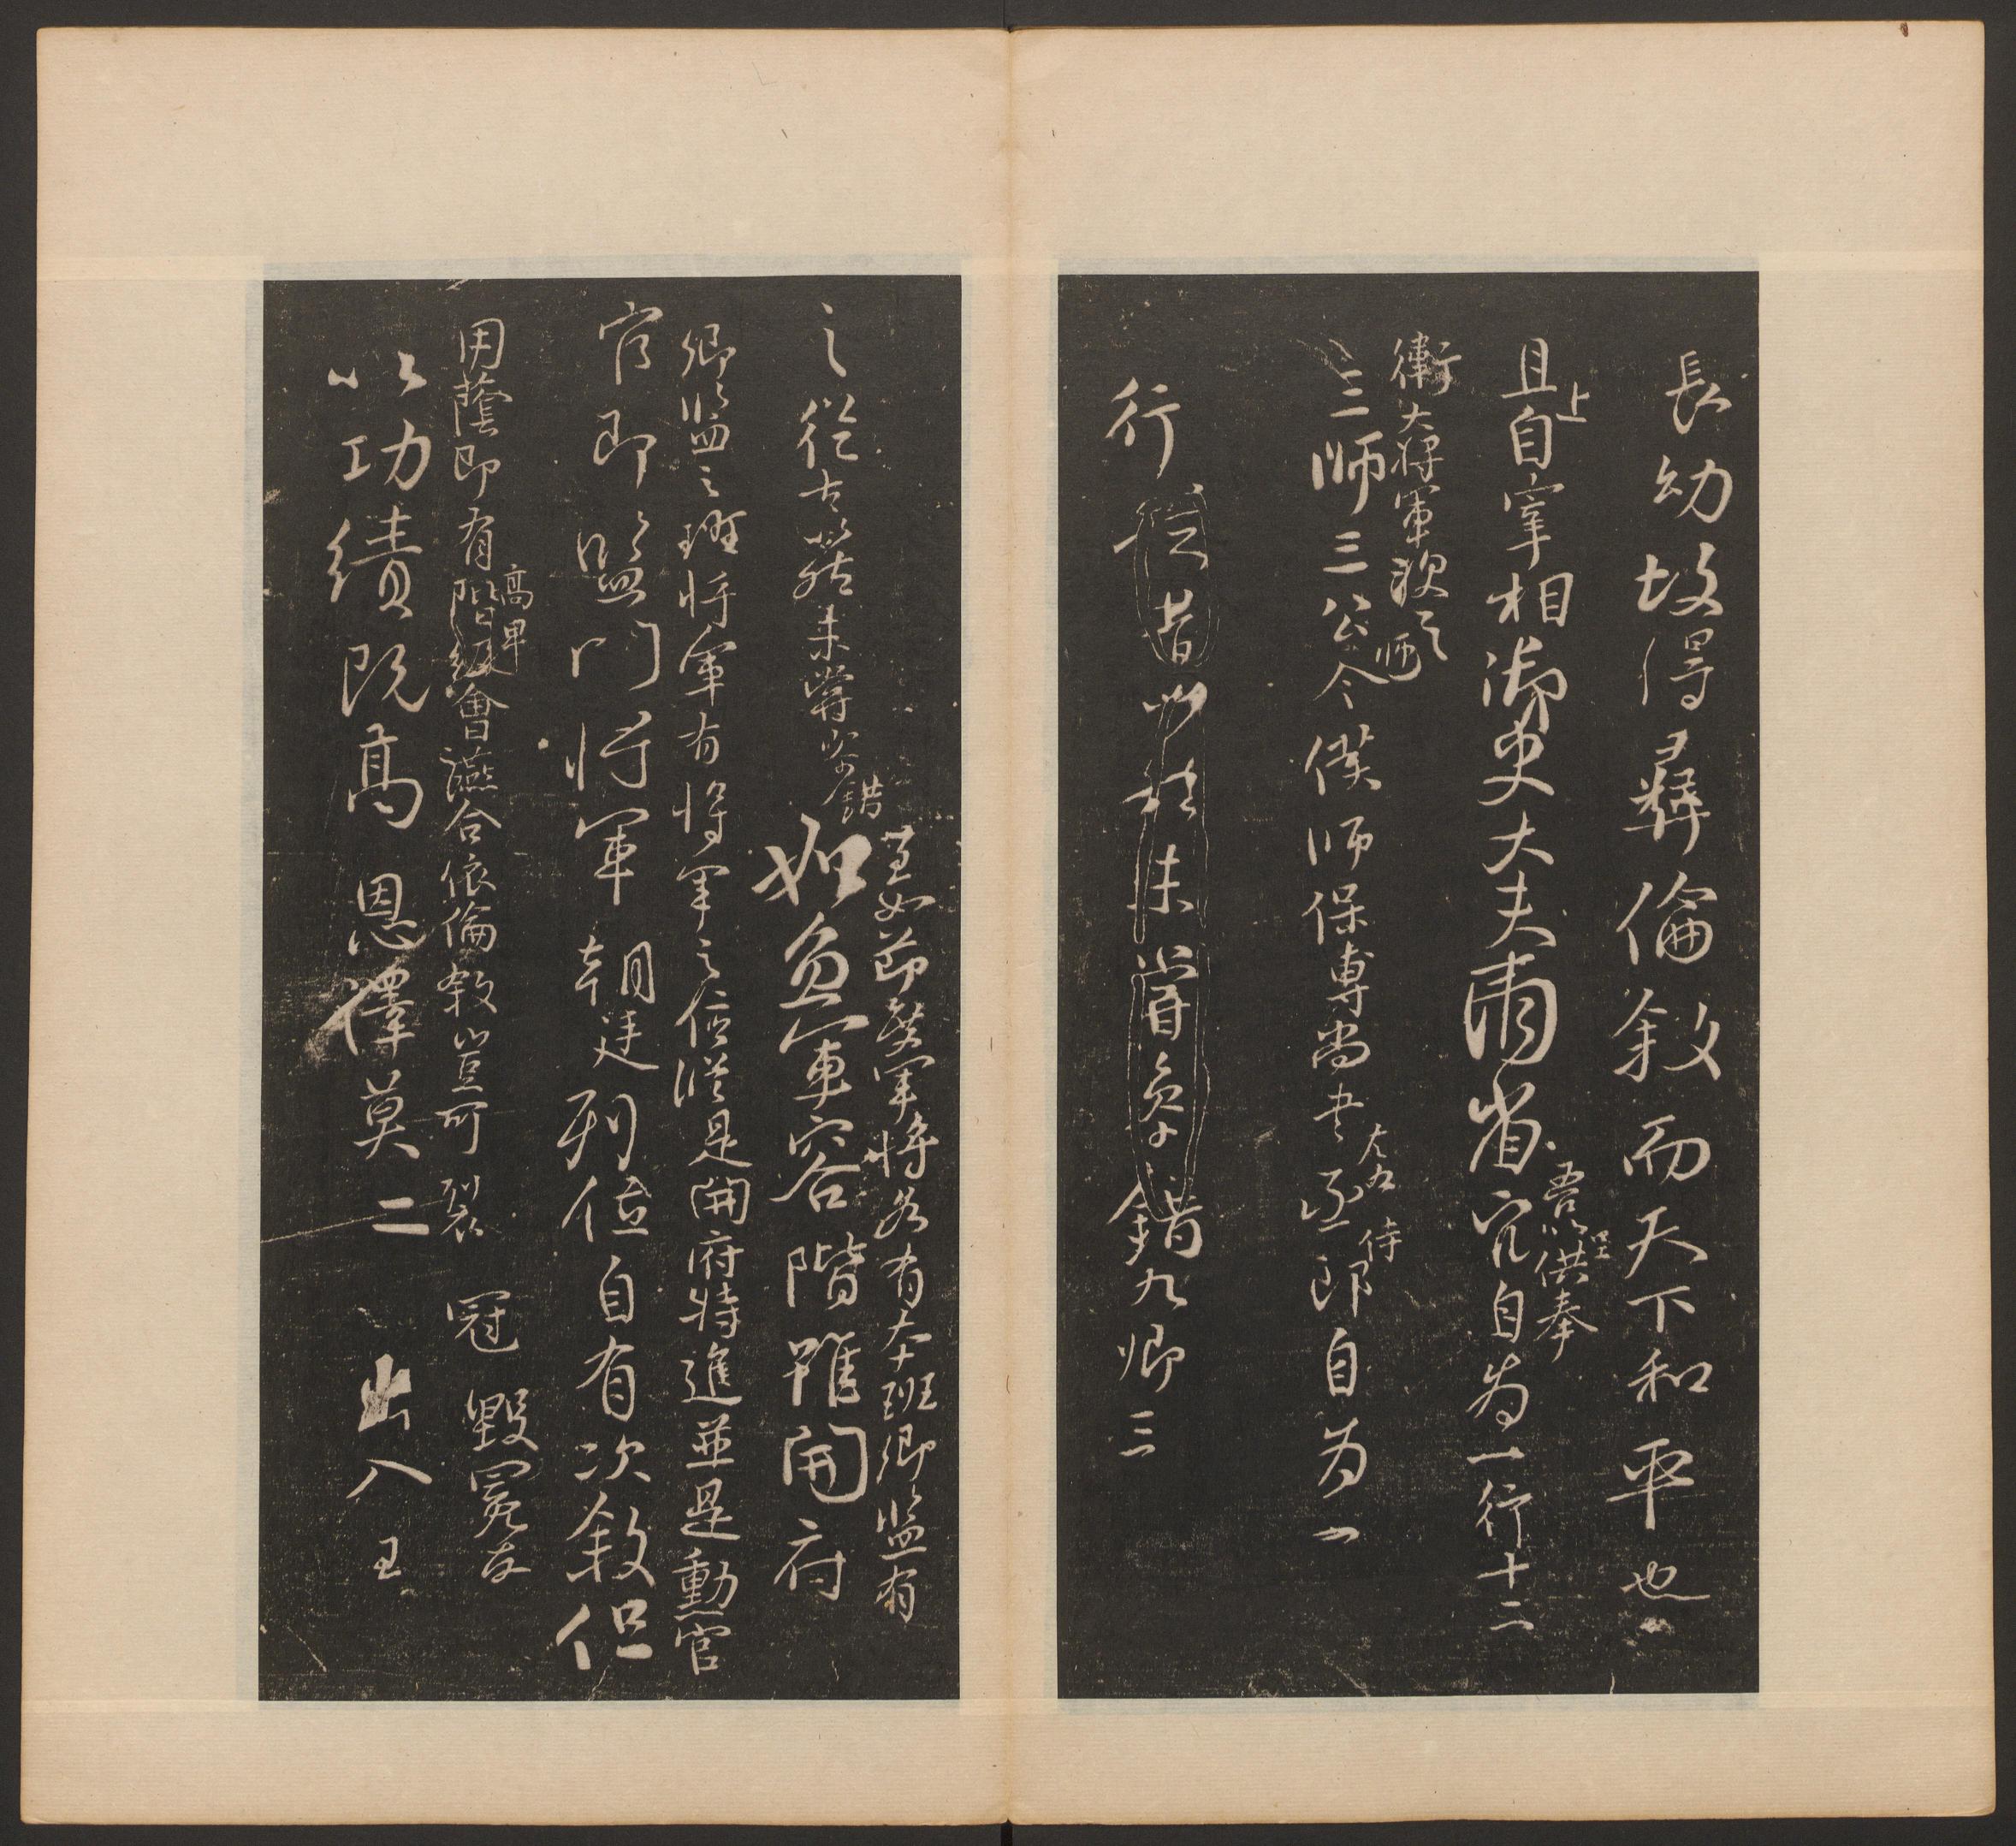 長幼故得彝倫敘而天下和平也
且上自宰相御史大夫兩省五品以上供奉官自為一行十二
衛大將軍次之
三師三公令僕師保傅尚書左右丞侍郎自為一
行從古以然未嘗參錯九卿三
之從古以然未嘗參錯
至如節度軍將各有本班卿監有
如魚軍容階雖開府
卿監之班將軍有將軍之位縱是開府特進並是勳官
官即監門將軍朝廷列位自有次敘但
用蔭即有階級高卑會讌合依倫敘豈可裂冠毀冕反
以功績既高恩澤莫二出入王